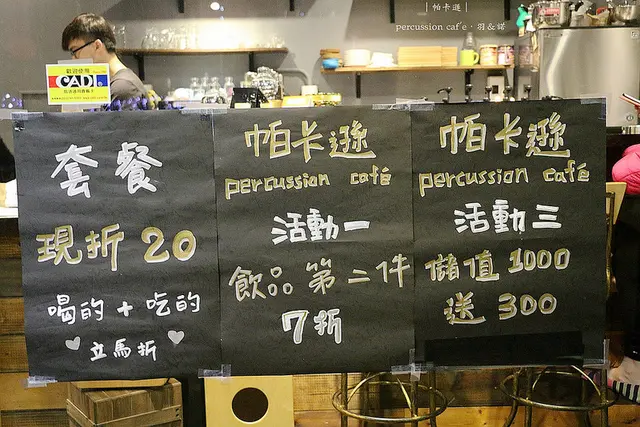 帕卡遜
percussion caf'e · 羽&諾
歡迎使用
CADI
套餐
現折 20
喝的 + 吃的
立馬折
帕卡遜
percussion café
活動一
飲品第二件
7折
帕卡遜
percussion café
活動三
儲值 1000
送 300